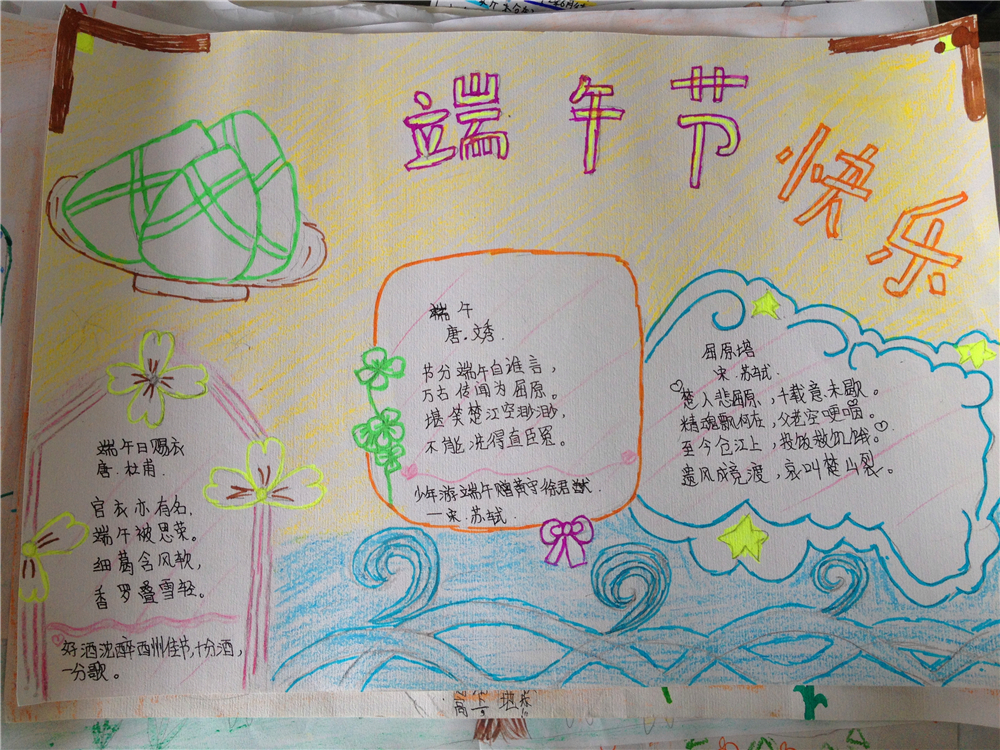 端午节
快乐
端午
唐.文秀
节分端午自谁言，
万古传闻为屈原。
堪笑楚江空渺渺，
不能洗得直臣冤。
少年游端午赠黄守徐君猷.
一宋.苏轼.
屈原塔
宋.苏轼.
楚人悲屈原，千载意未歇。
精魂飘何在，父老空哽咽。
至今仓江上，投饭救饥饿。
遗风成竞渡，哀叫楚山裂。
端午日赐衣
唐.杜甫.
宫衣亦有名.
端午被恩荣。
细葛含风软，
香罗叠雪轻。
好酒沈醉西州佳节,十分酒,
一分歌。